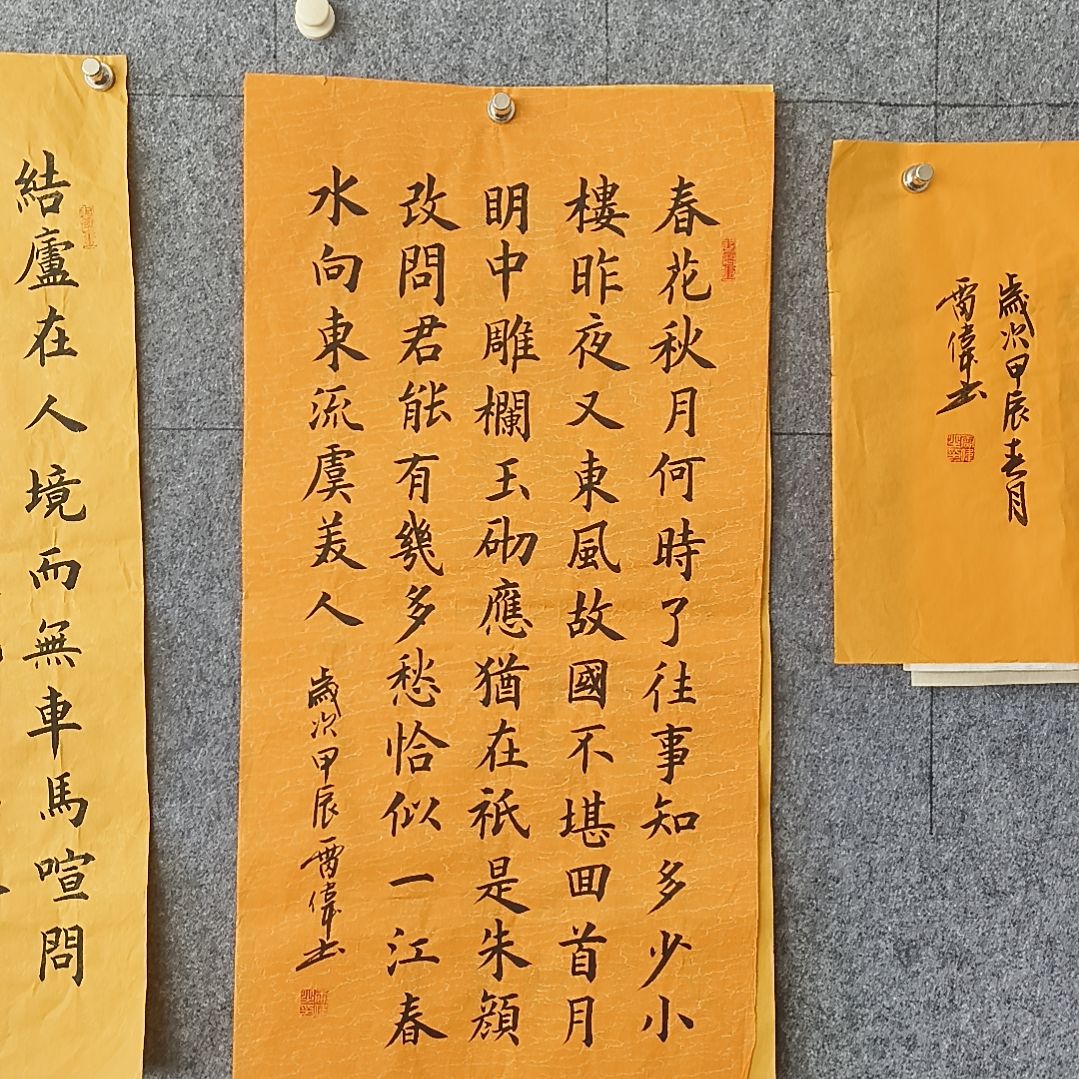 歲次甲辰春月
雷偉书
春花秋月何時了往事知多少小
樓昨夜又東風故國不堪囬首月
眀中雕欄玉砌應猶在祇是朱顔
改問君能有幾多愁恰似一江春
水向東流虞美人
歲次甲辰雷偉书
結廬在人境而無車馬喧問